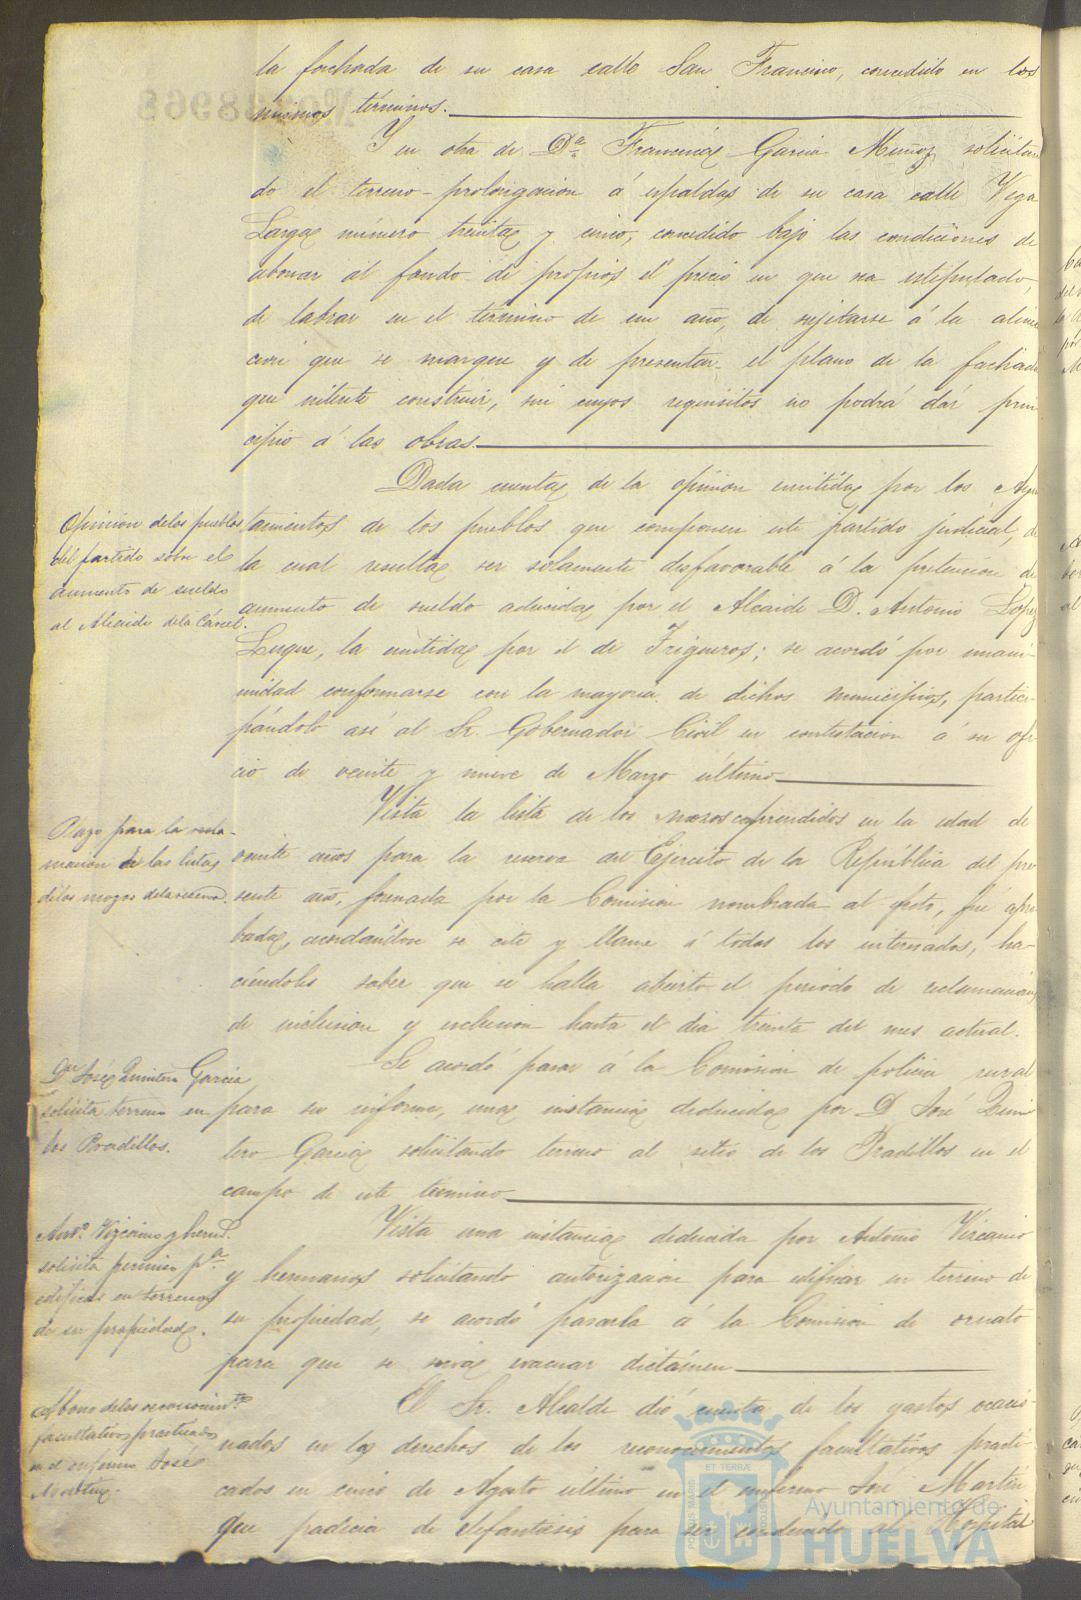 la fachada de su casa calle San Francisco, concedido en los
mismos términos.
Y en otra de Dª Francisca Garcia Muñoz solicitan
do el terreno prolongacion á espaldas de su casa calle Vega
Larga número treinta y cinco, concedido bajo las condiciones de
abonar al fondo de propios el precio en que sea estipulado,
de labrar en el término de un año, de sujetarse á la aline
cion que se marque y de presentar el plano de la fachada
que intente construir, sin cuyos requisitos no podrá dár prin
cipio á las obras.
Opinion de los pueblos
del partido sobre el
aumento de sueldo
al Alcaide de la Cárcel.
Dada cuenta de la opinion emitida por los Ayun
tamientos de los pueblos que componen este partido judicial, de
la cual resulta ser solamente desfavorable á la pretencion de
aumento de sueldo aducida por el Alcaide D. Antonio Lopez
Luque, la emitida por el de Trigueros; se acordó por unani-
midad conformarse con la mayoria de dichos municipios, partici-
pándolo asi al Sr. Gobernador Civil en contestacion á su ofi
cio de veinte y nueve de Marzo último
Plazo para la recla-
macion de las listas
de los mozos de la reserva.
Vista la lista de los mozos comprendidos en la edad de
veinte años para la reserva del Ejercito de la República del pre
sente año, formada por la Comision nombrada al efecto, fué apro
bada, acordándose se cite y llame á todos los interesados, ha-
ciéndoles saber que se halla abierto el periodo de reclamacion
de inclusion y exclusion hasta el dia treinta del mes actual.
Dn José Quintero Garcia
solicita terreno en
los Pradillos.
Se acordó pasar á la Comision de policia rural
para su informe, una instancia deducida por D José Quin
tero Garcia solicitando terreno al sitio de los Pradillos en el
campo de este término
Antº. Vizcaino y herm.
solicita permiso pª
edificar en terrenos
de su propiedad.
Vista una instancia deducida por Antonio Vizcaino
y hermanos solicitando autorizacion para edificar en terreno de
su propiedad, se acordó pasarla á la Comision de ornato
para que se sirva evacuar dictámen
Abono de los reconocimtos
facultativos practicados
en el enfermo José
Martin.
El Sr. Alcalde dió cuenta de los gastos ocacio-
nados en los derechos de los reconocimientos facultativos practi-
cados en cinco de Agosto último en el enfermo José Martin
que padecia de elefantiasis para ser conducido al Hospital
Ayuntamiento de
HUELVA